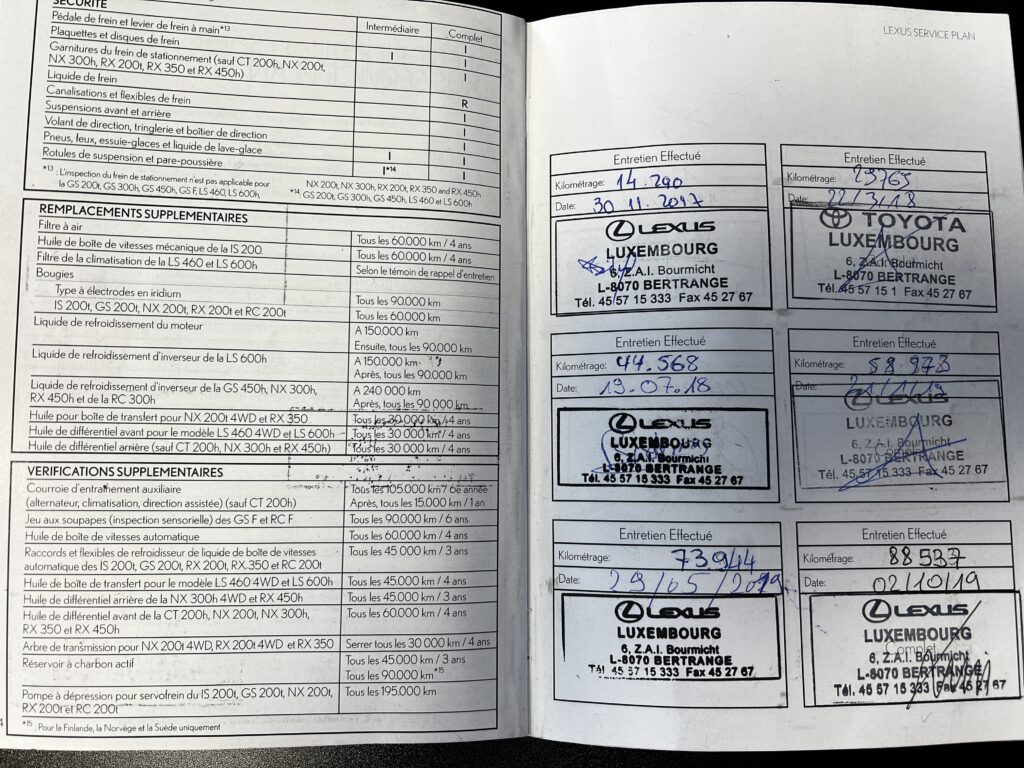 SÉCURITÉ
Intermédiaire Complet
Pédale de frein et levier de frein à main*13 I
Plaquettes et disques de frein I I
Garnitures du frein de stationnement (sauf CT 200h, NX 200t,
NX 300h, RX 200t, RX 350 et RX 450h) I
Liquide de frein R
Canalisations et flexibles de frein I
Suspensions avant et arrière I
Volant de direction, tringlerie et boîtier de direction I
Pneus, feux, essuie-glaces et liquide de lave-glace I I
Rotules de suspension et pare-poussière I*14 I
*13 : L'inspection du frein de stationnement n'est pas applicable pour
la GS 200t, GS 300h, GS 450h, GS F, LS 460, LS 600h,
NX 200t, NX 300h, RX 200t, RX 350 and RX 450h
*14: GS 200t, GS 300h, GS 450h, LS 460 et LS 600h
REMPLACEMENTS SUPPLEMENTAIRES
Filtre à air Tous les 60.000 km / 4 ans
Huile de boîte de vitesses mécanique de la IS 200 Tous les 60.000 km / 4 ans
Filtre de la climatisation de la LS 460 et LS 600h Selon le témoin de rappel d'entretien
Bougies
Type à électrodes en iridium Tous les 90.000 km
IS 200t, GS 200t, NX 200t, RX 200t et RC 200t Tous les 60.000 km
Liquide de refroidissement du moteur A 150.000 km
Ensuite, tous les 90.000 km
Liquide de refroidissement d'inverseur de la LS 600h A 150.000 km
Après, tous les 90.000 km
Liquide de refroidissement d'inverseur de la GS 450h, NX 300h, A 240 000 km
RX 450h et de la RC 300h Après, tous les 90 000 km
Huile pour boîte de transfert pour NX 200t 4WD et RX 350 Tous les 30 000 km / 4 ans
Huile de différentiel avant pour le modèle LS 460 4WD et LS 600h Tous les 30 000 km / 4 ans
Huile de différentiel arrière (sauf CT 200h, NX 300h et RX 450h) Tous les 30 000 km / 4 ans
VERIFICATIONS SUPPLEMENTAIRES
Courroie d'entraînement auxiliaire Tous les 105.000 km / 6e année
(alternateur, climatisation, direction assistée) (sauf CT 200h) Après, tous les 15.000 km / 1 an
Jeu aux soupapes (inspection sensorielle) des GS F et RC F Tous les 90.000 km / 6 ans.
Huile de boîte de vitesses automatique Tous les 60.000 km / 4 ans
Raccords et flexibles de refroidisseur de liquide de boîte de vitesses Tous les 45 000 km / 3 ans
automatique des IS 200t, GS 200t, RX 200t, RX 350 et RC 200t
Huile de boîte de transfert pour le modèle LS 460 4WD et LS 600h Tous les 45.000 km / 4 ans
Huile de différentiel arrière de la NX 300h 4WD et RX 450h Tous les 45.000 km / 3 ans
Huile de différentiel avant de la CT 200h, NX 200t, NX 300h, Tous les 60.000 km / 4 ans
RX 350 et RX 450h
Arbre de transmission pour NX 200t 4WD, RX 200t 4WD et RX 350 Serrer tous les 30 000 km / 4 ans
Réservoir à charbon actif Tous les 45.000 km / 3 ans
Tous les 90.000 km*15
Pompe à dépression pour servofrein du IS 200t, GS 200t, NX 200t, Tous les 195.000 km
RX 200t et RC 200t
*15 : Pour la Finlande, la Norvège et la Suède uniquement
4
LEXUS SERVICE PLAN
Entretien Effectué
Kilométrage: 14.290
Date: 30 11. 2017
LEXUS
LUXEMBOURG
6, Z.A.I. Bourmicht
L-8070 BERTRANGE
Tél. 45 57 15 333 Fax 45 27 67
Entretien Effectué
Kilométrage: 29765
Date: 22/3/18
TOYOTA
LUXEMBOURG
6, Z.A.I. Bourmicht
L-8070 BERTRANGE
Tél. 45 57 15 1 Fax 45 27 67
Entretien Effectué
Kilométrage: 44.568
Date: 19.07.18
LEXUS
LUXEMBOURG
6, Z.A.I. Bourmicht
L-8070 BERTRANGE
Tél. 45 57 15 333 Fax 45 27 67
Entretien Effectué
Kilométrage: 58 973
Date: 21/1/19
LEXUS
LUXEMBOURG
6, Z.A.I. Bourmicht
L-8070 BERTRANGE
Tél. 45 57 15 333 Fax 45 27 67
Entretien Effectué
Kilométrage: 73944
Date: 29/05/2019
LEXUS
LUXEMBOURG
6, Z.A.I. Bourmicht
L-8070 BERTRANGE
Tél. 45 57 15 333 Fax 45 27 67
Entretien Effectué
Kilométrage: 88537
Date: 02/10/19
LEXUS
LUXEMBOURG
Complet
6, Z.A.I. Bourmicht
L-8070 BERTRANGE
Tél. 45 57 15 333 Fax 45 27 67